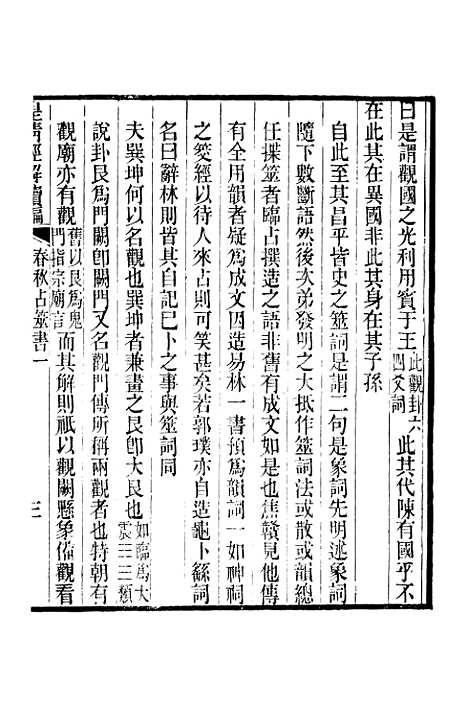 曰是謂觀國之光利用賓于王此觀卦六四爻詞此其代陳有國乎不
在此其在異國非此其身在其子孫
自此至其昌乎皆史之筮詞是謂二句是象詞先明述象詞
隨下數斷語然後次弟發明之大抵作筮詞法或散或韻總
任揲筮者臨占撰造之語非舊有成文如是也焦贛見他傳
有全用韻者疑爲成文因造易林一書預爲韻詞一如神祠
之筊經以待人來占可笑甚矣若郭璞亦自造龜卜繇詞
名曰辭林則皆其自記已卜之事與筮詞同
夫巽坤何以名觀也巽坤者兼畫之艮卽大艮也如臨爲大震三三類
說卦艮爲門闕卽闕門又名觀門傳所稱兩觀者也特朝有
觀廟亦有觀舊以艮爲鬼門指宗廟言而其解則祇以觀闕懸象備觀看
皇清經解續編
春秋占筮書一
三